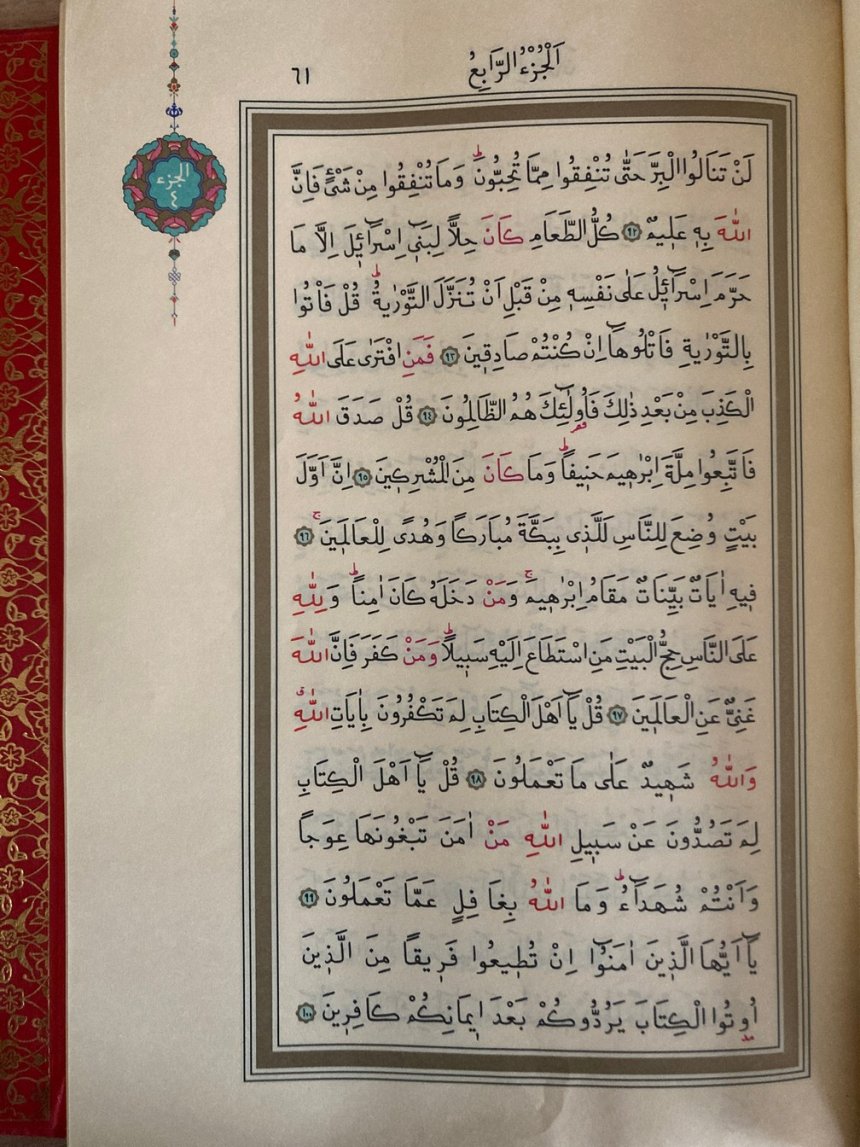 اَلْجُزْءُ الرَّابِعُ
٦١
الجزء
٤
لَنْ تَنَالُوا الْبِرَّ حَتّٰى تُنْفِقُوا مِمَّا تُحِبُّونَۜ وَمَا تُنْفِقُوا مِنْ شَيْءٍ فَاِنَّ
اللّٰهَ بِهٖ عَلٖيمٌ ﴿٩٢﴾ كُلُّ الطَّعَامِ كَانَ حِلًّا لِبَنٖٓى اِسْرَٓائٖلَ اِلَّا مَا
حَرَّمَ اِسْرَٓائٖلُ عَلٰى نَفْسِهٖ مِنْ قَبْلِ اَنْ تُنَزَّلَ التَّوْرٰيةُؕ قُلْ فَاْتُوا
بِالتَّوْرٰيةِ فَاتْلُوهَٓا اِنْ كُنْتُمْ صَادِقٖينَ ﴿٩٣﴾ فَمَنِ افْتَرٰى عَلَى اللّٰهِ
الْكَذِبَ مِنْ بَعْدِ ذٰلِكَ فَاُو۬لٰٓئِكَ هُمُ الظَّالِمُونَ ﴿٩٤﴾ قُلْ صَدَقَ اللّٰهُ
فَاتَّبِعُوا مِلَّةَ اِبْرٰهٖيمَ حَنٖيفًاؕ وَمَا كَانَ مِنَ الْمُشْرِكٖينَ ﴿٩٥﴾ اِنَّ اَوَّلَ
بَيْتٍ وُضِعَ لِلنَّاسِ لَلَّذٖى بِبَكَّةَ مُبَارَكًا وَهُدًى لِلْعَالَمٖينَۚ ﴿٩٦﴾
فٖيهِ اٰيَاتٌ بَيِّنَاتٌ مَقَامُ اِبْرٰهٖيمَۚ وَمَنْ دَخَلَهُ كَانَ اٰمِنًاؕ وَلِلّٰهِ
عَلَى النَّاسِ حِجُّ الْبَيْتِ مَنِ اسْتَطَاعَ اِلَيْهِ سَبٖيلًاؕ وَمَنْ كَفَرَ فَاِنَّ اللّٰهَ
غَنِيٌّ عَنِ الْعَالَمٖينَ ﴿٩٧﴾ قُلْ يَٓا اَهْلَ الْكِتَابِ لِمَ تَكْفُرُونَ بِاٰيَاتِ اللّٰهِۗ
وَاللّٰهُ شَهٖيدٌ عَلٰى مَا تَعْمَلُونَ ﴿٩٨﴾ قُلْ يَٓا اَهْلَ الْكِتَابِ
لِمَ تَصُدُّونَ عَنْ سَبٖيلِ اللّٰهِ مَنْ اٰمَنَ تَبْغُونَهَا عِوَجًا
وَاَنْتُمْ شُهَدَٓاءُؕ وَمَا اللّٰهُ بِغَافِلٍ عَمَّا تَعْمَلُونَ ﴿٩٩﴾
يَٓا اَيُّهَا الَّذٖينَ اٰمَنُٓوا اِنْ تُطٖيعُوا فَرٖيقًا مِنَ الَّذٖينَ
اُو۫تُوا الْكِتَابَ يَرُدُّوكُمْ بَعْدَ اٖيمَانِكُمْ كَافِرٖينَ ﴿١٠٠﴾